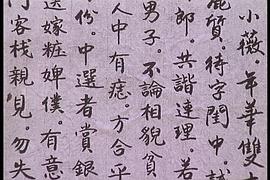 小薇。年華雙
麗質。待字閨中。
郎。共諧連理。若
男子。不論相貌貧
人中有痣。方合乎
份。中選者賞銀
送嫁粧婢僕。有意
門客棧親見。勿失